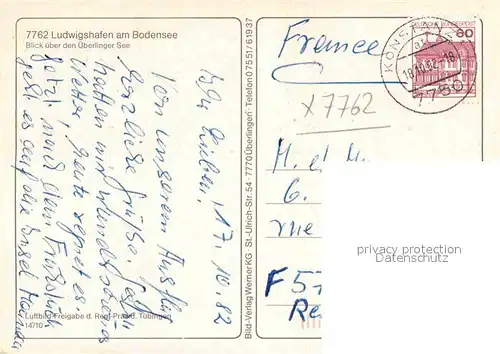 7762 Ludwigshafen am Bodensee
Blick über den Überlinger See
Ihr Lieben, 17. 10. 82
Von unserem Ausflug
herzliche Grüße. Gestern
hatten wir wunderschönes
Wetter, heute regnet es.
Jetzt nach dem Frühstück
geht es auf die Insel Mainau
Luftbild Freigabe d. Reg. Präsid. Tübingen
14/10
Bild-Verlag Werner KG · St.-Ulrich-Str. 54 · 7770 Überlingen · Telefon 0 75 51/6 19 37
France
x 7762
KONSTANZ
18.10.82-18
7750
DEUTSCHE BUNDESPOST
60
M. et M.
6.
rue
F 57
Re
privacy protection
Datenschutz